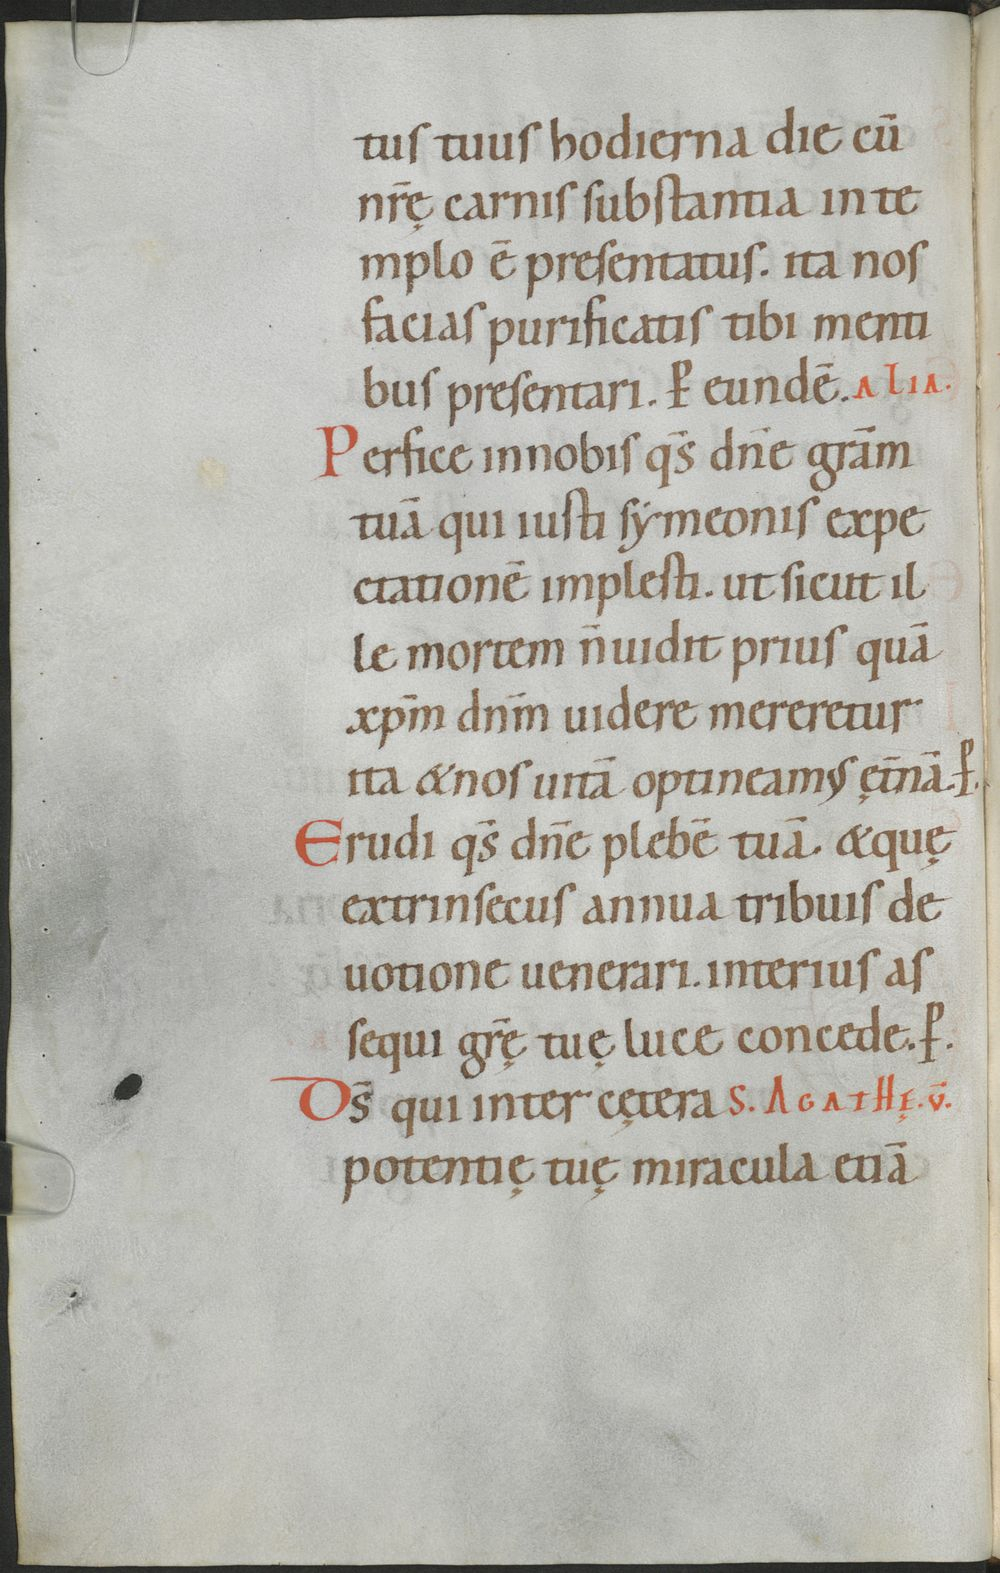 tus tuus hodierna die cū
nr̄ę carnis substantia in te
mplo ē presentatus. ita nos
facias purificatis tibi menti
bus presentari. P̄ eundē. ALIA.
Perfice in nobis qs̄ dn̄e grām
tuā qui iusti sẏmeonis expe
ctationē implesti. ut sicut il
le mortem n̄ uidit prius quā
xp̄m dn̄m uidere mereretur
ita & nos uitā optineamus ęt̄nā. P̄.
Erudi qs̄ dn̄e plebē tuā. & quę
extrinsecus annua tribuis de
uotione uenerari. interius as
sequi gr̄ę tuę luce concede. P̄.
Ds̄ qui inter cętera S. AGATHĘ. V̄.
potentię tuę miracula etiā